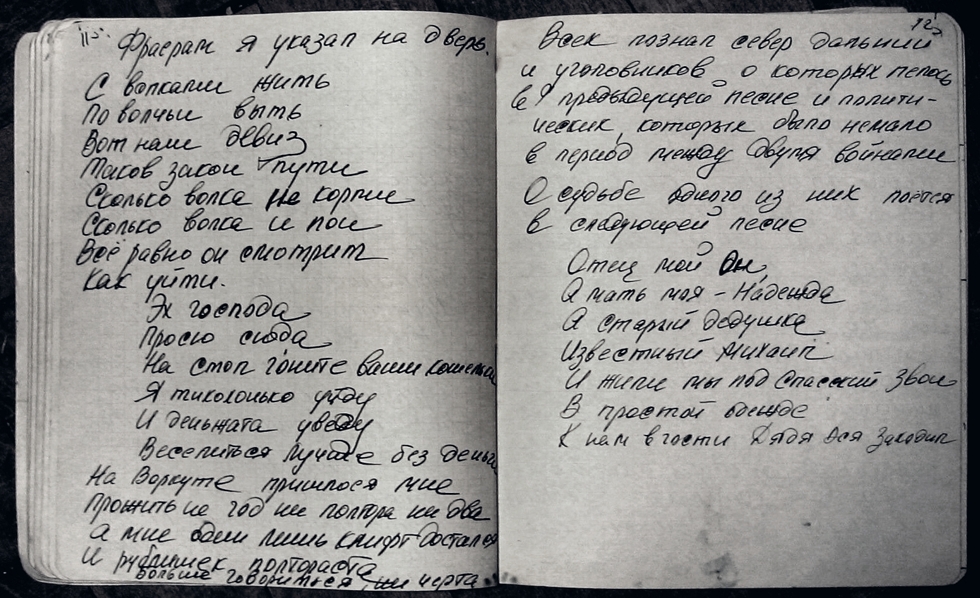 115.
Фраерам я указал на дверь.
С волками жить
По волчьи выть
Вот наш девиз
Таков закон пути
Сколько волка не корми
Сколько волка и пои
Всё равно он смотрит
Как уйти.
Эх господа
Прошу сюда
На стол гоните ваши кошельки
Я тихонько уйду
И деньжата уведу
Веселиться лучше без деньг
На Воркуте пришлося мне
Прожить не год ни полтора ни два
а мне один лишь клифт достался
И рублишек полтораста
больше говориться, ни черта
125
Всех познал север дальний
и уголовников о которых пелось
в предыдущей песне и полити-
ческих, которых было немало
в период между двумя войнами
О судьбе одного из них поётся
в следующей песне
Отец мой Он,
А мать моя - Надежда
А старый дедушка
Известный Михаил
И жили мы под Спасский звон
В простой одежде
К нам в гости Дядя Ося Заходил